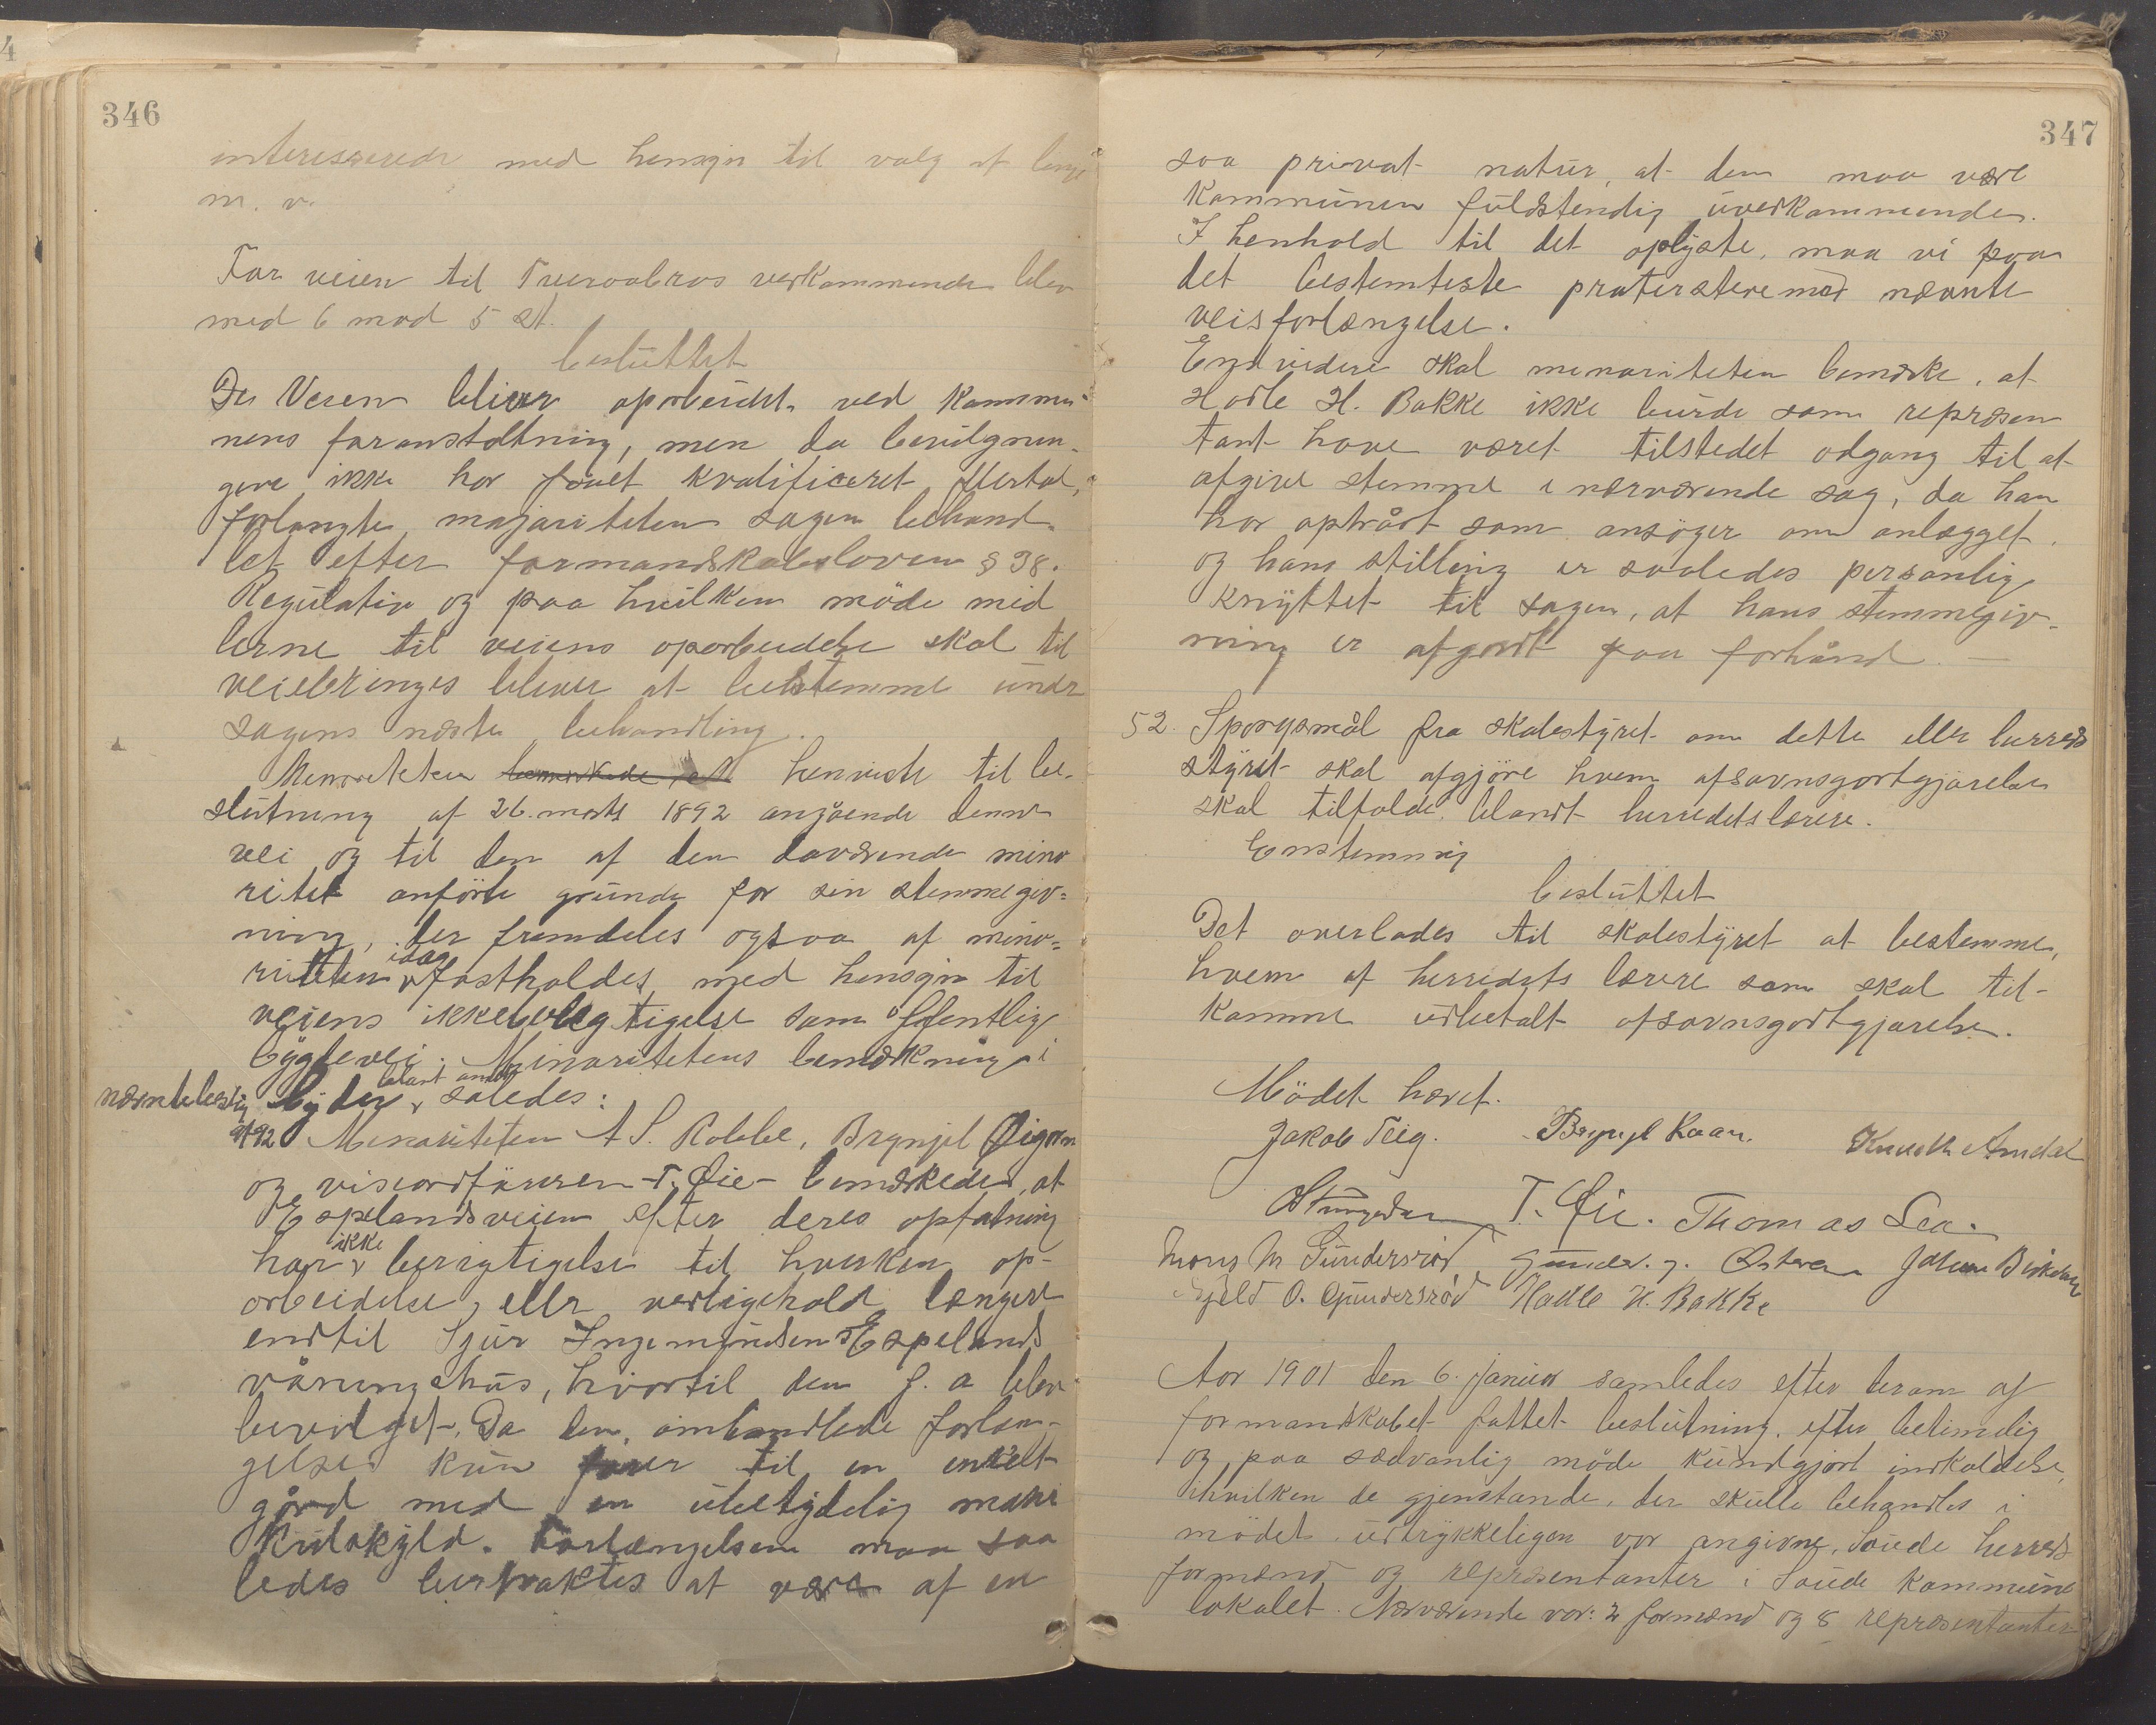 346
interesserede med hensyn til valg af
m. v.
For veien til Tveraabros vedkommende blev
med 6 mod 5 st.
besluttet
Da Veien bliver oparbeidet ved kommu-
nens foranstaltning, men da bevilgnin-
gene ikke har faaet kvalificeret flertal,
forlangte majariteten sagen behand-
let efter formandskabsloven § 38.
Regulativ og paa hvilken måde mid
lerne til veiens oparbeidelse skal til
veiebringes bliver at bestemme under
sagens næste behandling.
Menoriteten bemærkede, at henviste til be-
slutning af 26. marts 1892 angående denne
vei og til den af den daværende mino
ritet anførte grunde for sin stemmegiv=
ning, der fremdeles ogsaa af mino=
idag
riteten fastholdes med hensyn til
veiens ikkeberegtigelse som offentlig
bygdevei. Minoritetens bemærkning i
blant andet
nævnte beslutning lyder således:
92 Menoriteten A S. Rabbe, Brynjel Øigarn
og viseordføreren T. Øie - bemærkede, at
Espelandsveien efter deres opfatning
ikke
har berigtigelse til hverken op-
arbeidelse eller vedligehold længere
endtil Sjur Ingemundsen Espelands
våningshus, hvortil den f. a blev
bevilget. Da den omhandlede forlæn-
gelse kun fører til en enkelt
gård med en ubetydelig matri
kulskyld. Forlængelsen maa saa
ledes betraktes at være af en
347
saa privat natur, at den maa være
kommunen fuldstendig uvedkommende.
I henhold til det oplyste, maa vi paa
det bestemteste protestere mod nævnte
veisforlængelse.
Endvidere skal menoriteten bemærke, at
Hadle H. Bakke ikke burde som repræsen
tant have været tilstedet adgang til at
afgive stemme i nærværende sag, da han
har optrådt som ansøger om anlægget.
og hans stilling er saaledes personlig
knyttet til sagen, at hans stemmegiv-
ning er afgordt paa forhånd. -
52. Sporgsmål fra skolestyret om dette eller herreds
styret skal afgjøre hvem afsavnsgodtgjørelse
skal tilfalde blandt herredets lærere.
Enstemmig
besluttet
Det overlades til skolestyret at bestemme,
hvem af herredets lærere som skal til-
komme udbetalt afsavnsgodtgjørelse.
Mödet hævet.
Jakob Teig. Brynjel Raan. Knud Th Amdal
T. Øie. Thomas Lea.
Mons M Gundersrød Gunder. J. Østeren Johan Birkeland
Ejeld O. Gundersrød Hadle H. Bakke
Aar 1901 den 6. januar samledes efter deraum af
formandskabet fattet beslutning, efter betimelig
og paa sædvanlig måde kundgjort indkaldelse,
ihvilken de gjenstande, der skulle behandles i
mødet udtrykkeligen var angivne, Saude herreds
formænd og repræsentanter i Saude kommune
lokalet. Nærværende var: 4 formænd og 8 repræsentanter